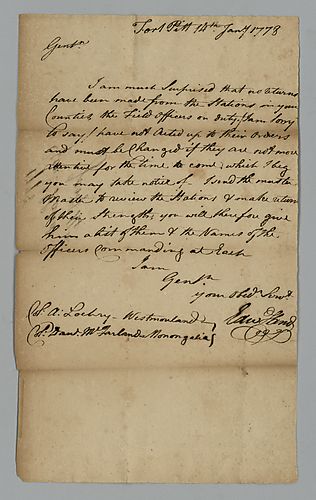 Fort Pitt 14th Jany 1778
Gentn
I am much Surprised that no returns
have been made from the Stations in your
Counties, the Field Officers on duty, I am sorry
to say, have not Acted up to their Orders
and must be Changed if they are not more
attentive for the time to come; which I beg
you may take notice of. I send the muster
Master to review the Stations & make return
of their Strength; you will therefore give
him a list of them & the Names of the
Officers Commanding at Each
I am
Gentn
your Obedt Servt
Edwd Hand
Col. A. Lochry - Westmorland &
Col. Danl. McFarland Monongalia